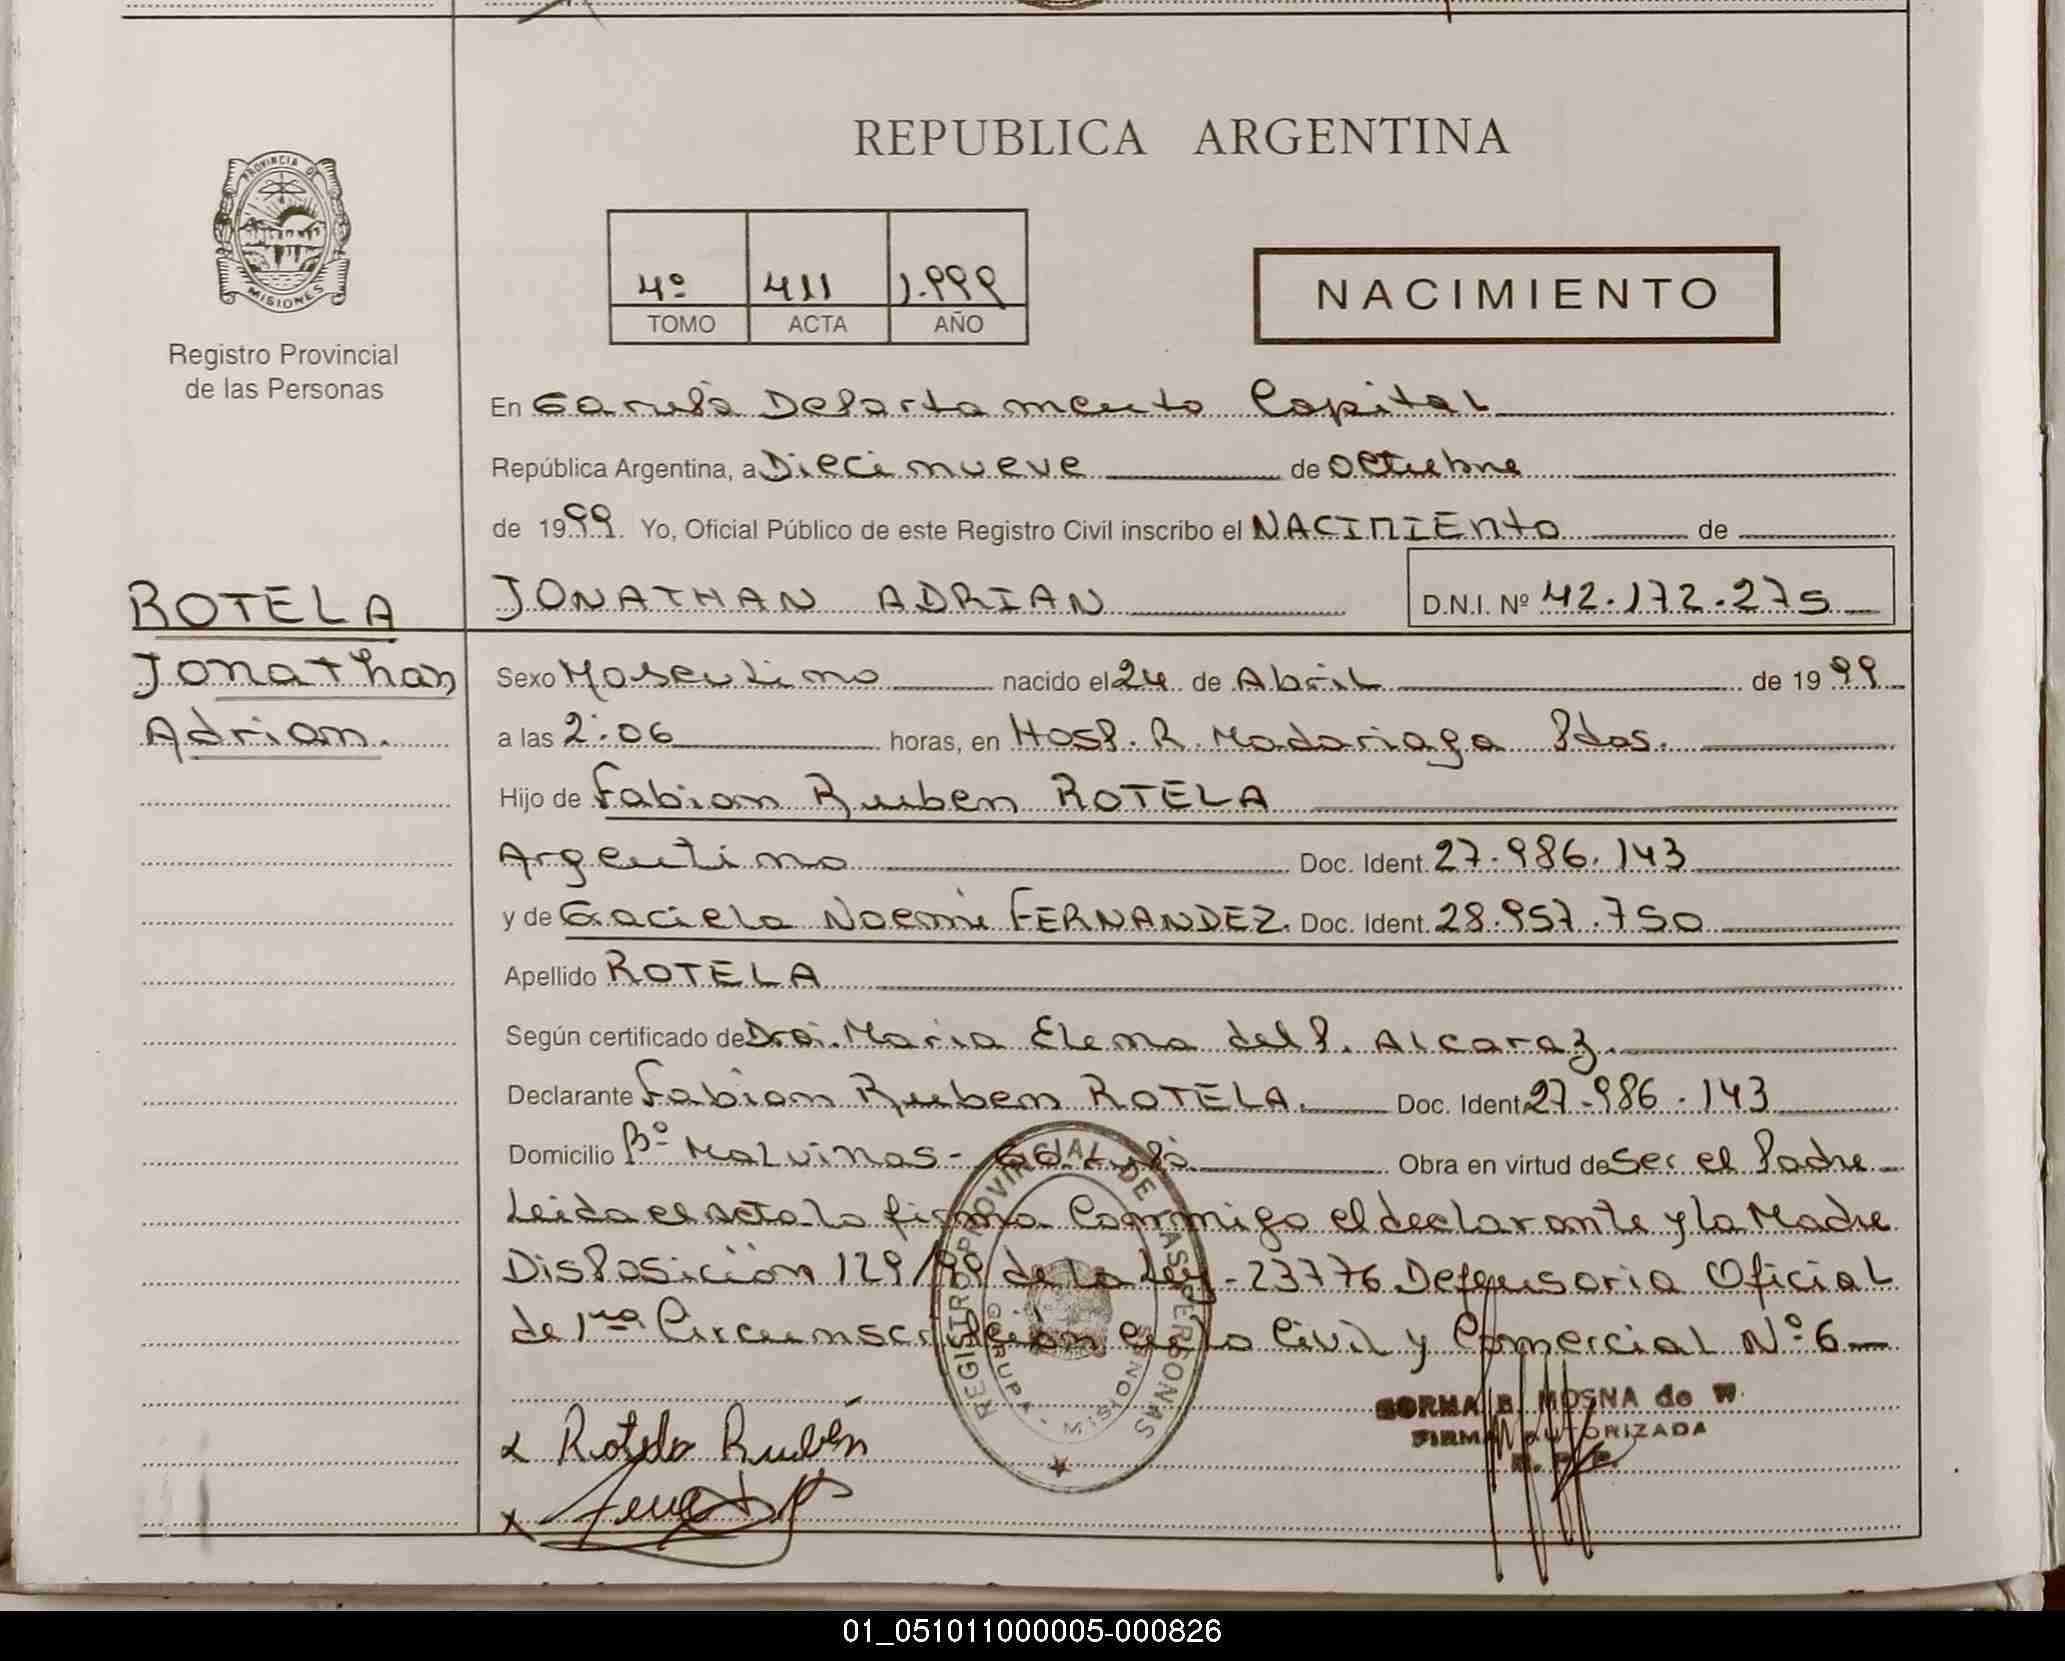 REPUBLICA ARGENTINA
PROVINCIA DE
MISIONES
Registro Provincial
de las Personas
4º 411 1.999
TOMO ACTA AÑO
NACIMIENTO
En Garupá Departamento Capital
República Argentina, a Diecinueve de Octubre
de 1999. Yo, Oficial Público de este Registro Civil inscribo el NACIMIENTO de
JONATHAN ADRIAN D.N.I. Nº 42.172.275
ROTELA
Jonathan
Adrian.
Sexo Masculino nacido el 24 de Abril de 1999
a las 2:06 horas, en Hosp. R. Madariaga Pdas.
Hijo de Fabian Ruben ROTELA
Argentino Doc. Ident. 27.986.143
y de Gaciela Noemi FERNANDEZ. Doc. Ident. 28.957.750
Apellido ROTELA
Según certificado de Dra. Maria Elena del P. Alcaraz.
Declarante Fabian Ruben ROTELA. Doc. Ident. 27.986.143
Domicilio Bº Malvinas - Obra en virtud de Ser el Padre
Leida el acta la firma Conmigo el declarante y la Madre
Disposición 129/99 de la Ley-23776 Defensoria Oficial
de 1ra Circunscripcion en lo Civil y Comercial Nº 6
REGISTRO PROVINCIAL DE LAS PERSONAS
GARUPA - MISIONES
NORMA B. MOSNA de W.
FIRMA AUTORIZADA
R. P. P.
x Rotela Rubén
x
01_051011000005-000826